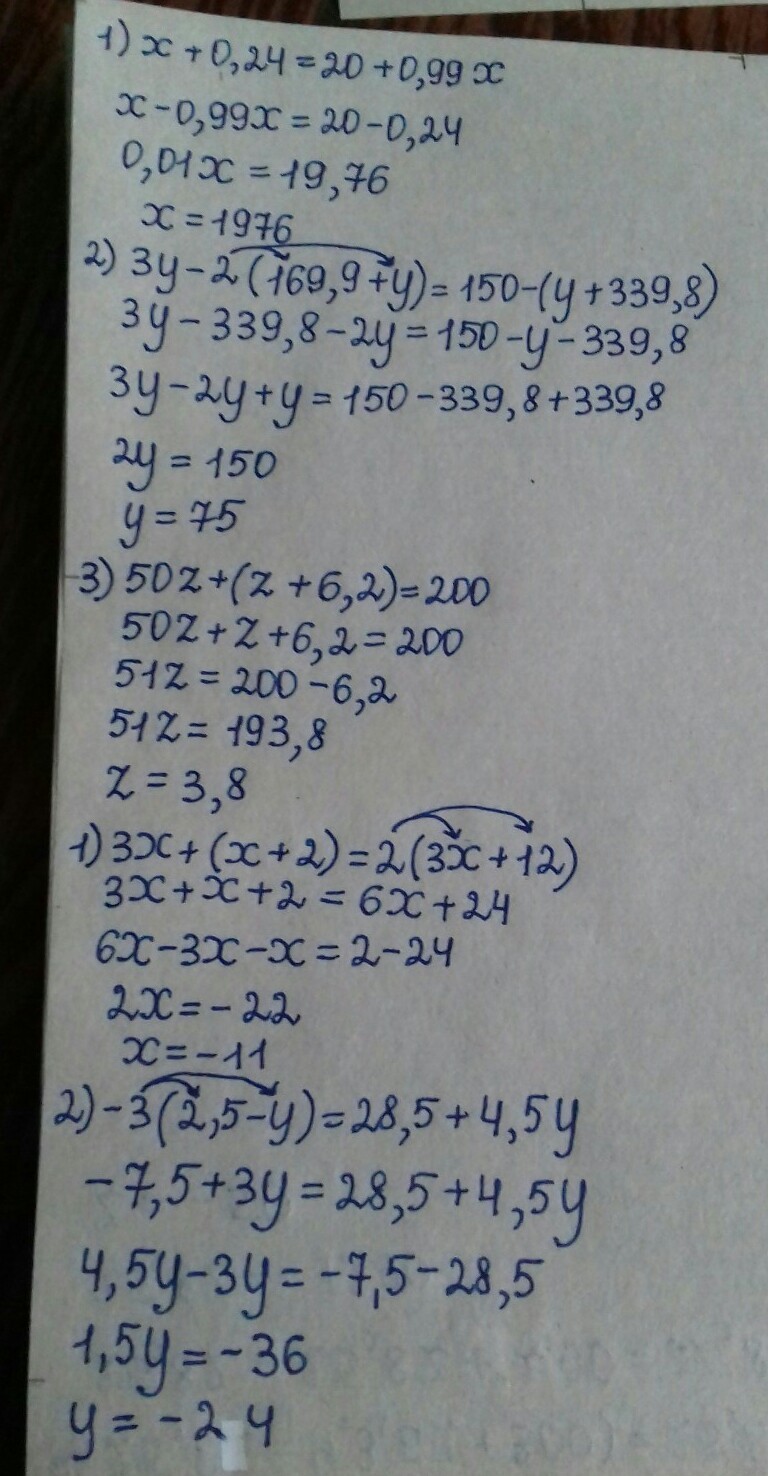 1) x + 0,24 = 20 + 0,99 x
x - 0,99x = 20 - 0,24
0,01x = 19,76
x = 1976
2) 3y - 2 (169,9 + y) = 150 - (y + 339,8)
3y - 339,8 - 2y = 150 - y - 339,8
3y - 2y + y = 150 - 339,8 + 339,8
2y = 150
y = 75
3) 50z + (z + 6,2) = 200
50z + z + 6,2 = 200
51z = 200 - 6,2
51z = 193,8
z = 3,8
1) 3x + (x + 2) = 2(3x + 12)
3x + x + 2 = 6x + 24
6x - 3x - x = 2 - 24
2x = - 22
x = - 11
2) - 3(2,5 - y) = 28,5 + 4,5y
- 7,5 + 3y = 28,5 + 4,5y
4,5y - 3y = - 7,5 - 28,5
1,5y = - 36
y = - 24